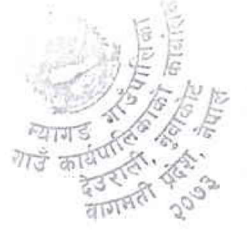 म्यागङ गाउँपालिका
गाउँ कार्यपालिकाको कार्यालय
देउराली, नुवाकोट
बागमती प्रदेश, नेपाल
२०७३